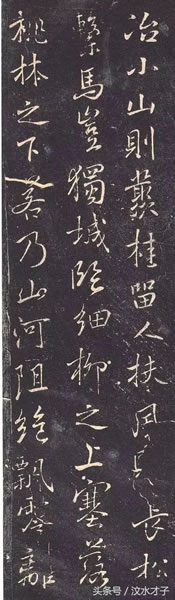 冶小山則叢桂留人扶風長松
繫馬豈獨城臨細柳之上塞落
桃林之下若乃山河阻絶飄零離
头条号/汶水才子